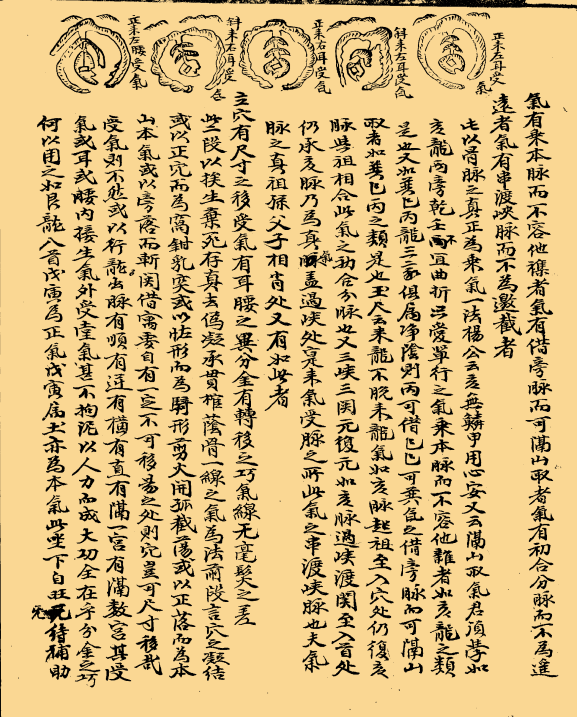 正未左耳受氣
斜未右耳受氣
正未右耳受氣
斜未右耳受氣
正未左腰受氣
氣有乘本脉而不容他襍者氣有借旁脉而可滿山取者氣有初合分脉而不為進
遠者氣有串渡峽脉而不為邀截者
此以骨脉之真正為乘氣一法楊公云亥無轔甲用心安又云滿山取氣君須夢如
亥龍兩旁乾壬不宜曲折只受單行之氣乘本脉而不容他雜者如亥龍之類
是也又如巽巳丙龍三家俱属净陰則丙可借巳巳可乘之借旁脉而可滿山
取者如巽巳丙之類是也玉尺云未龍不脱未龍氣如亥脉起祖至入穴处仍復亥
脉與祖相合此氣之初合分脉也又三峽三関元復元如亥脉過峽渡関至入首处
仍承亥脉乃為真氣脉盖過峽处是未氣受脉之所此氣之串渡峽脉也夫氣
脉之真祖孫父子相肖处又有如此者
立穴有尺寸之移受氣有耳腰之異分金有轉移之巧氣線无毫髮之差
此二段以挨生棄死存真去偽凝承貫榷蔭骨一線之氣為法前段言穴之凝结
或以正穴而為窩鉗乳突或以肚形而為騎形剪火開孤截蕩或以正落而為本
山本氣或以旁落而斬関借寓要自有一定不可移易之处則穴豈可尺寸移哉
受氣則不然或以行龍出脉有順有逆有横有直有滿一宫有滿数宫其受
氣或耳或腰内接生氣外受堂氣甚不拘泥以人力而成大功全在乎分金之巧
何以用之如艮龍八首戊寅為正氣戊寅属土亦為本氣此坐下自旺无待補助